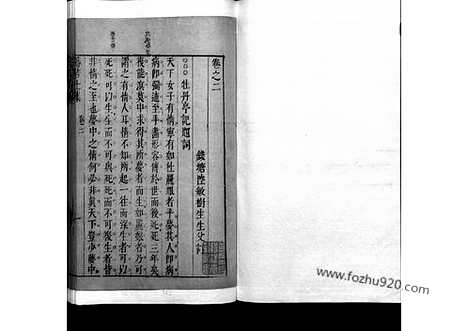 卷之二
錢塘陸敏樹生生父
牡丹亭記題詞
天下女子有情寧有如杜麗娘者乎夢其人即病
病即彌連至手畫形容傳於世而後死死三年矣
復能溟莫中求得其所夢者而生如麗娘者乃可
謂之有情人耳情不知所起一往而深生者可以
死死可以生生而不可與死死而不可復生者皆
非情之至也夢中之情何必非真天下豈少夢中
卷二
www.fozhu920.com